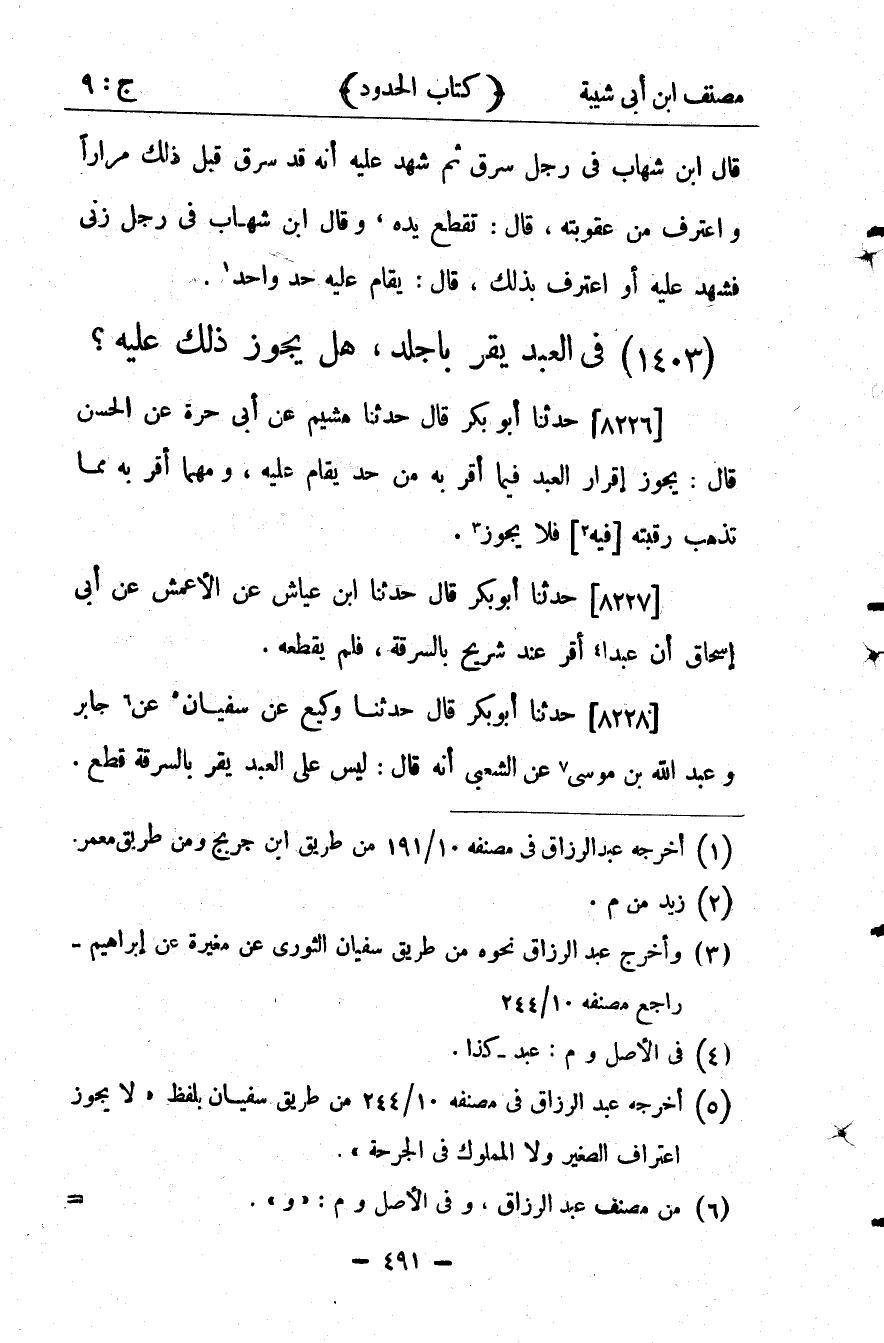 مصنف ابن أبى شيبة ﴿ كتاب الحدود ﴾ ج : ٩
قال ابن شهاب فى رجل سرق ثم شهد عليه أنه قد سرق قبل ذلك مراراً
و اعترف من عقوبته ، قال : تقطع يده ، و قال ابن شهـاب فى رجل زنى
فشهد عليه أو اعترف بذلك ، قال : يقام عليه حد واحد١ .
(١٤٠٣) فى العبد يقر باجلد ، هل يجوز ذلك عليه ؟
[٨٢٢٦] حدثنا أبو بكر قال حدثنا هشيم عن أبى حرة عن الحسن
قال : يجوز إقرار العبد فيما أقر به من حد يقام عليه ، و مهما أقر به ممـا
تذهب رقبته [فيه٢] فلا يجوز٣ .
[٨٢٢٧] حدثنا أبوبكر قال حدثنا ابن عياش عن الأعمش عن أبى
إسحاق أن عبدا٤ أقر عند شريح بالسرقة ، فلم يقطعه .
[٨٢٢٨] حدثنا أبوبكر قال حدثنـا وكيع عن سفيـان٥ عن٦ جابر
و عبد الله بن موسى٧ عن الشعبي أنه قال : ليس على العبد يقر بالسرقة قطع .
(١) أخرجه عبدالرزاق فى مصنفه ١٩١/١٠ من طريق ابن جريج ومن طريق معمر.
(٢) زيد من م .
(٣) وأخرج عبد الرزاق نحوه من طريق سفيان الثورى عن مغيرة عن إبراهيم ـ
راجع مصنفه ٢٤٤/١٠
(٤) فى الأصل و م : عبد ـ كذا .
(٥) أخرجه عبد الرزاق فى مصنفه ٢٤٤/١٠ من طريق سفيـان بلفظ « لا يجوز
اعتراف الصغير ولا المملوك فى الجرحة » .
(٦) من مصنف عبد الرزاق ، و فى الأصل و م : « و » . =
– ٤٩١ –